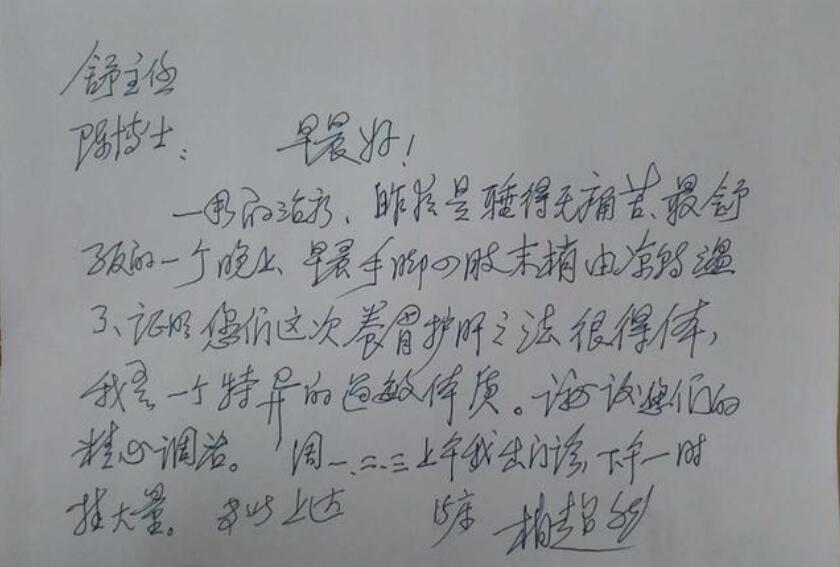 舒主任
陈博士： 早晨好！
一周的治疗、昨夜是睡得无痛苦、最舒
服的一个晚上、早晨手脚四肢末梢由凉转温
了、证明您们这次养胃护肝之法很得体，
我是一个特异的过敏体质。谢谢您们的
精心调治。 周一、二、三上午我出门诊、下午一时
挂大量。 专此上达 15床